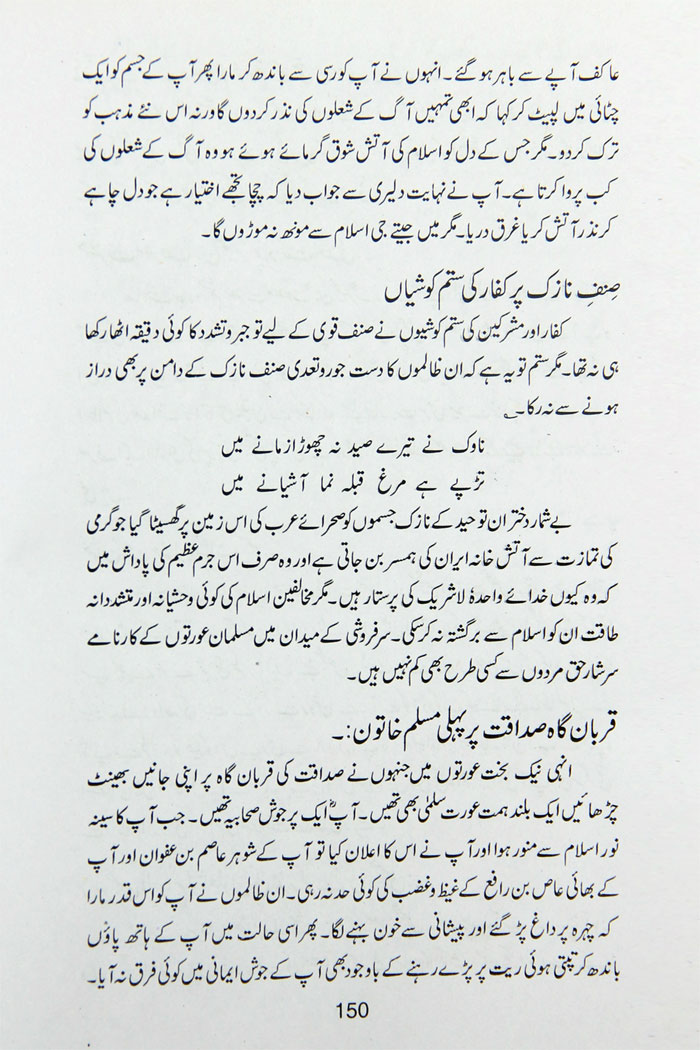 عاکف آپے سے باہر ہو گئے۔ انہوں نے آپ کو رسی سے باندھ کر مارا پھر آپ کے جسم کو ایک
چٹائی میں لپیٹ کر کہا کہ ابھی تمہیں آگ کے شعلوں کی نذر کردوں گا ورنہ اس نئے مذہب کو
ترک کردو۔ مگر جس کے دل کو اسلام کی آتش شوق گرمائے ہوئے ہو وہ آگ کے شعلوں کی
کب پروا کرتا ہے۔ آپ نے نہایت دلیری سے جواب دیا کہ چچا تجھے اختیار ہے جو دل چاہے
کر نذر آتش کر یا غرق دریا۔ مگر میں جیتے جی اسلام سے مونھ نہ موڑوں گا۔
صِنفِ نازک پر کفار کی ستم کوشیاں
کفار اور مشرکین کی ستم کوشیوں نے صنف قوی کے لیے تو جبر و تشدد کا کوئی دقیقہ اٹھا رکھا
ہی نہ تھا۔ مگر ستم تو یہ ہے کہ ان ظالموں کا دست جور و تعدی صنف نازک کے دامن پر بھی دراز
ہونے سے نہ رکا۔
ناوک نے تیرے صید نہ چھوڑا زمانے میں
تڑپے ہے مرغ قبلہ نما آشیانے میں
بے شمار دختران توحید کے نازک جسموں کو صحرائے عرب کی اس زمین پر گھسیٹا گیا جو گرمی
کی تمازت سے آتش خانہ ایران کی ہمسر بن جاتی ہے اور وہ صرف اس جرم عظیم کی پاداش میں
کہ وہ کیوں خدائے واحدۂ لاشریک کی پرستار ہیں۔ مگر مخالفین اسلام کی کوئی وحشیانہ اور متشددانہ
طاقت ان کو اسلام سے برگشتہ نہ کر سکی۔ سرفروشی کے میدان میں مسلمان عورتوں کے کارنامے
سرشار حق مردوں سے کسی طرح بھی کم نہیں ہیں۔
قربان گاہ صداقت پر پہلی مسلم خاتون:۔
انہی نیک بخت عورتوں میں جنہوں نے صداقت کی قربان گاہ پر اپنی جانیں بھینٹ
چڑھائیں ایک بلند ہمت عورت سلمٰی بھی تھیں۔ آپؓ ایک پر جوش صحابیہ تھیں۔ جب آپ کا سینہ
نور اسلام سے منور ہوا اور آپ نے اس کا اعلان کیا تو آپ کے شوہر عاصم بن عفوان اور آپ
کے بھائی عاص بن رافع کے غیظ و غضب کی کوئی حد نہ رہی۔ ان ظالموں نے آپ کو اس قدر مارا
کہ چہرہ پر داغ پڑ گئے اور پیشانی سے خون بہنے لگا۔ پھر اسی حالت میں آپ کے ہاتھ پاؤں
باندھ کر تپتی ہوئی ریت پر پڑے رہنے کے باوجود بھی آپ کے جوش ایمانی میں کوئی فرق نہ آیا۔
150